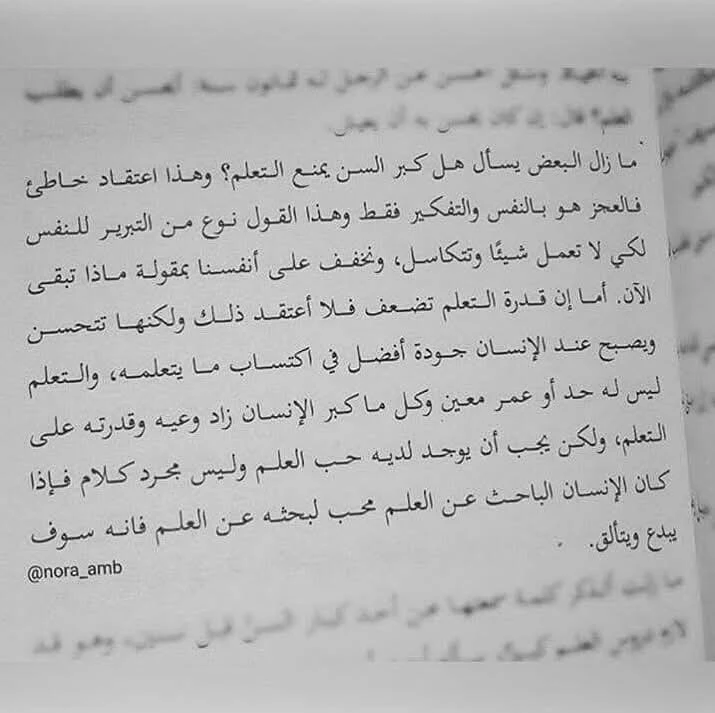 ما زال البعض يسأل هل كبر السن يمنع التعلم؟ وهذا اعتقاد خاطئ
فالعجز هو بالنفس والتفكير فقط وهذا القول نوع من التبرير للنفس
لكي لا تعمل شيئًا وتتكاسل، ونخفف على أنفسنا بمقولة ماذا تبقى
الآن. أما إن قدرة التعلم تضعف فلا أعتقد ذلك ولكنها تتحسن
ويصبح عند الإنسان جودة أفضل في اكتساب ما يتعلمه، والتعلم
ليس له حد أو عمر معين وكل ما كبر الإنسان زاد وعيه وقدرته على
التعلم، ولكن يجب أن يوجد لديه حب العلم وليس مجرد كلام فإذا
كان الإنسان الباحث عن العلم محب لبحثه عن العلم فانه سوف
يبدع ويتألق.
@nora_amb